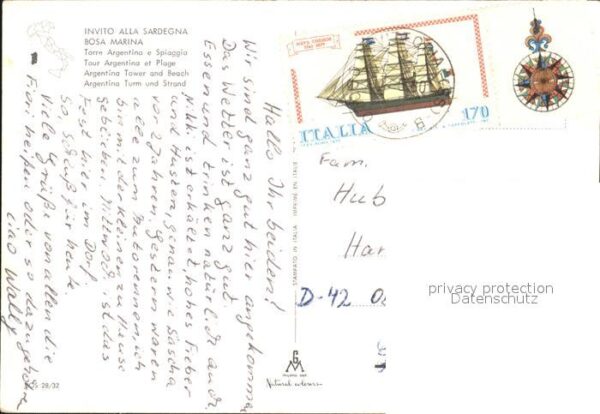 INVITO ALLA SARDEGNA
BOSA MARINA
Torre Argentina e Spiaggia
Tour Argentina et Plage
Argentina Tower and Beach
Argentina Turm und Strand
ITALIA
170
Hallo Ihr beiden!
Wir sind ganz gut hier angekommen
Das Wetter ist ganz gut
Essen und trinken natürlich auch.
Nikki ist erkältet, hohes Fieber
und Husten, genau wie Sascha
vor 2 Jahren, gestern waren
alle zum Autorennen, ich
bin mit der kleinen zu Hause
geblieben. Mittwoch ist das
Fest hier im Dorf
So, Schluß für heute.
Viele Grüße von allen die
Fiori heißen oder so dazugehören
ciao Wally
Fam.
Hub
Har
D-42 O
privacy protection
Datenschutz
STAMPATO IN ITALIA
Natural colours
28/32